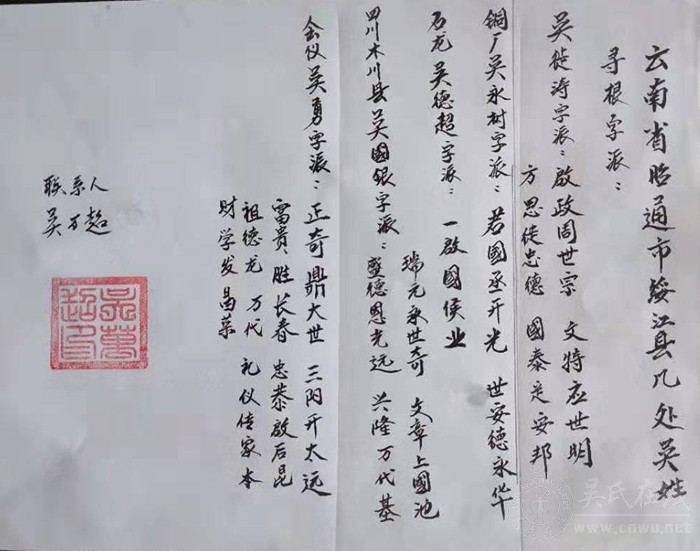 云南省昭通市绥江县几处吴姓
寻根字派：
吴继涛字派：啟政周世宗 文特应世明
方思徒忠德 國泰定安邦
铜厂吴永树字派：若國丞开光 世安德永华
石龙 吴德超字派：一啟國侯业
瑞元承世奇 文章上國池
四川木川县吴國银字派：盛德恩光远 兴隆万代基
会仪吴勇字派：正奇鼎大世 三阳开太远
富贵胜长春 忠恭啟后昆
祖德龙万代 礼仪传家本
财学发昌荣
联系人
吴万超
吳萬超印
吴氏在线
www.cnwu.net